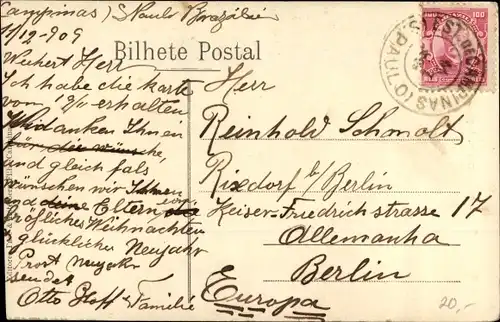 Campinas) S Paul Brazilie
11/12-909
Wehert Herr
Ich habe die karte
vom 10/11 erhalten
Wid anken Ihnen
für die wünsche,
und gleich fals
wünschen wir Ihnen
und deine Eltern ein
fröhliches Weihnachten
glückliches Neujahr
Prost neujahr
sendet
Otto Hoff u Familie
Bilhete Postal
Herr
Reinhold Schmolt
Rixdorf b/Berlin
Keiser-Friedrichstrasse 17
Allemanha
Berlin
Europa
100
20,-